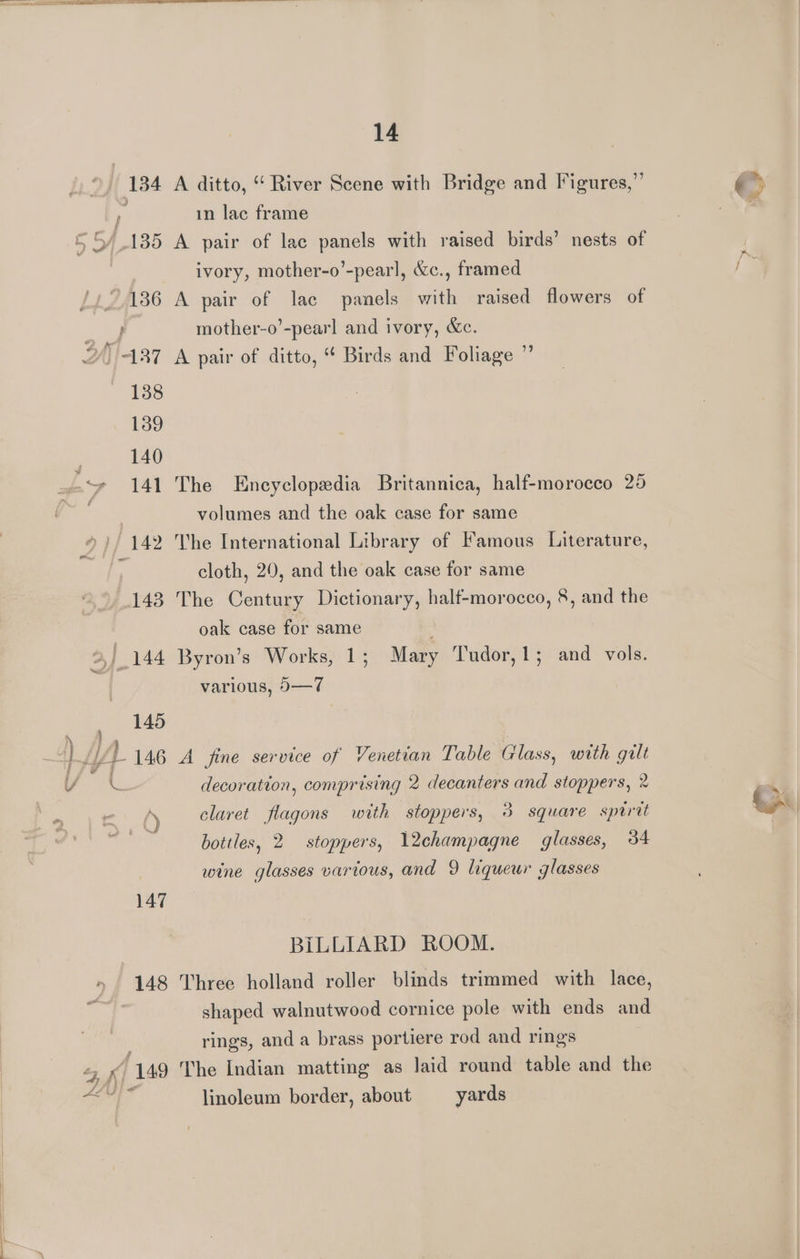 14
134 A ditto, “ River Scene with Bridge and Figures,”
in lac frame
135 A pair of lac panels with raised birds’ nests of
ivory, mother-o’-pearl, &c., framed
136 A pair of lac panels with raised flowers of
mother-o’-pearl and ivory, &c.
137 A pair of ditto, “ Birds and Foliage ”
138
139
140
141 The Encyclopædia Britannica, half-morocco 25
volumes and the oak case for same
142 The International Library of Famous Literature,
cloth, 20, and the oak case for same
143 The Century Dictionary, half-morocco, 8, and the
oak case for same
144 Byron’s Works, 1; Mary Tudor, 1; and vols.
various, 5—7
145
146 A fine service of Venetian Table Glass, with gilt
decoration, comprising 2 decanters and stoppers, 2
claret flagons with stoppers, 3 square spirit
bottles, 2 stoppers, 12champagne glasses, 34
wine glasses various, and 9 liqueur glasses
147
BILLIARD ROOM.
148 Three holland roller blinds trimmed with lace,
shaped walnutwood cornice pole with ends and
rings, and a brass portiere rod and rings
149 The Indian matting as laid round table and the
linoleum border, about yards